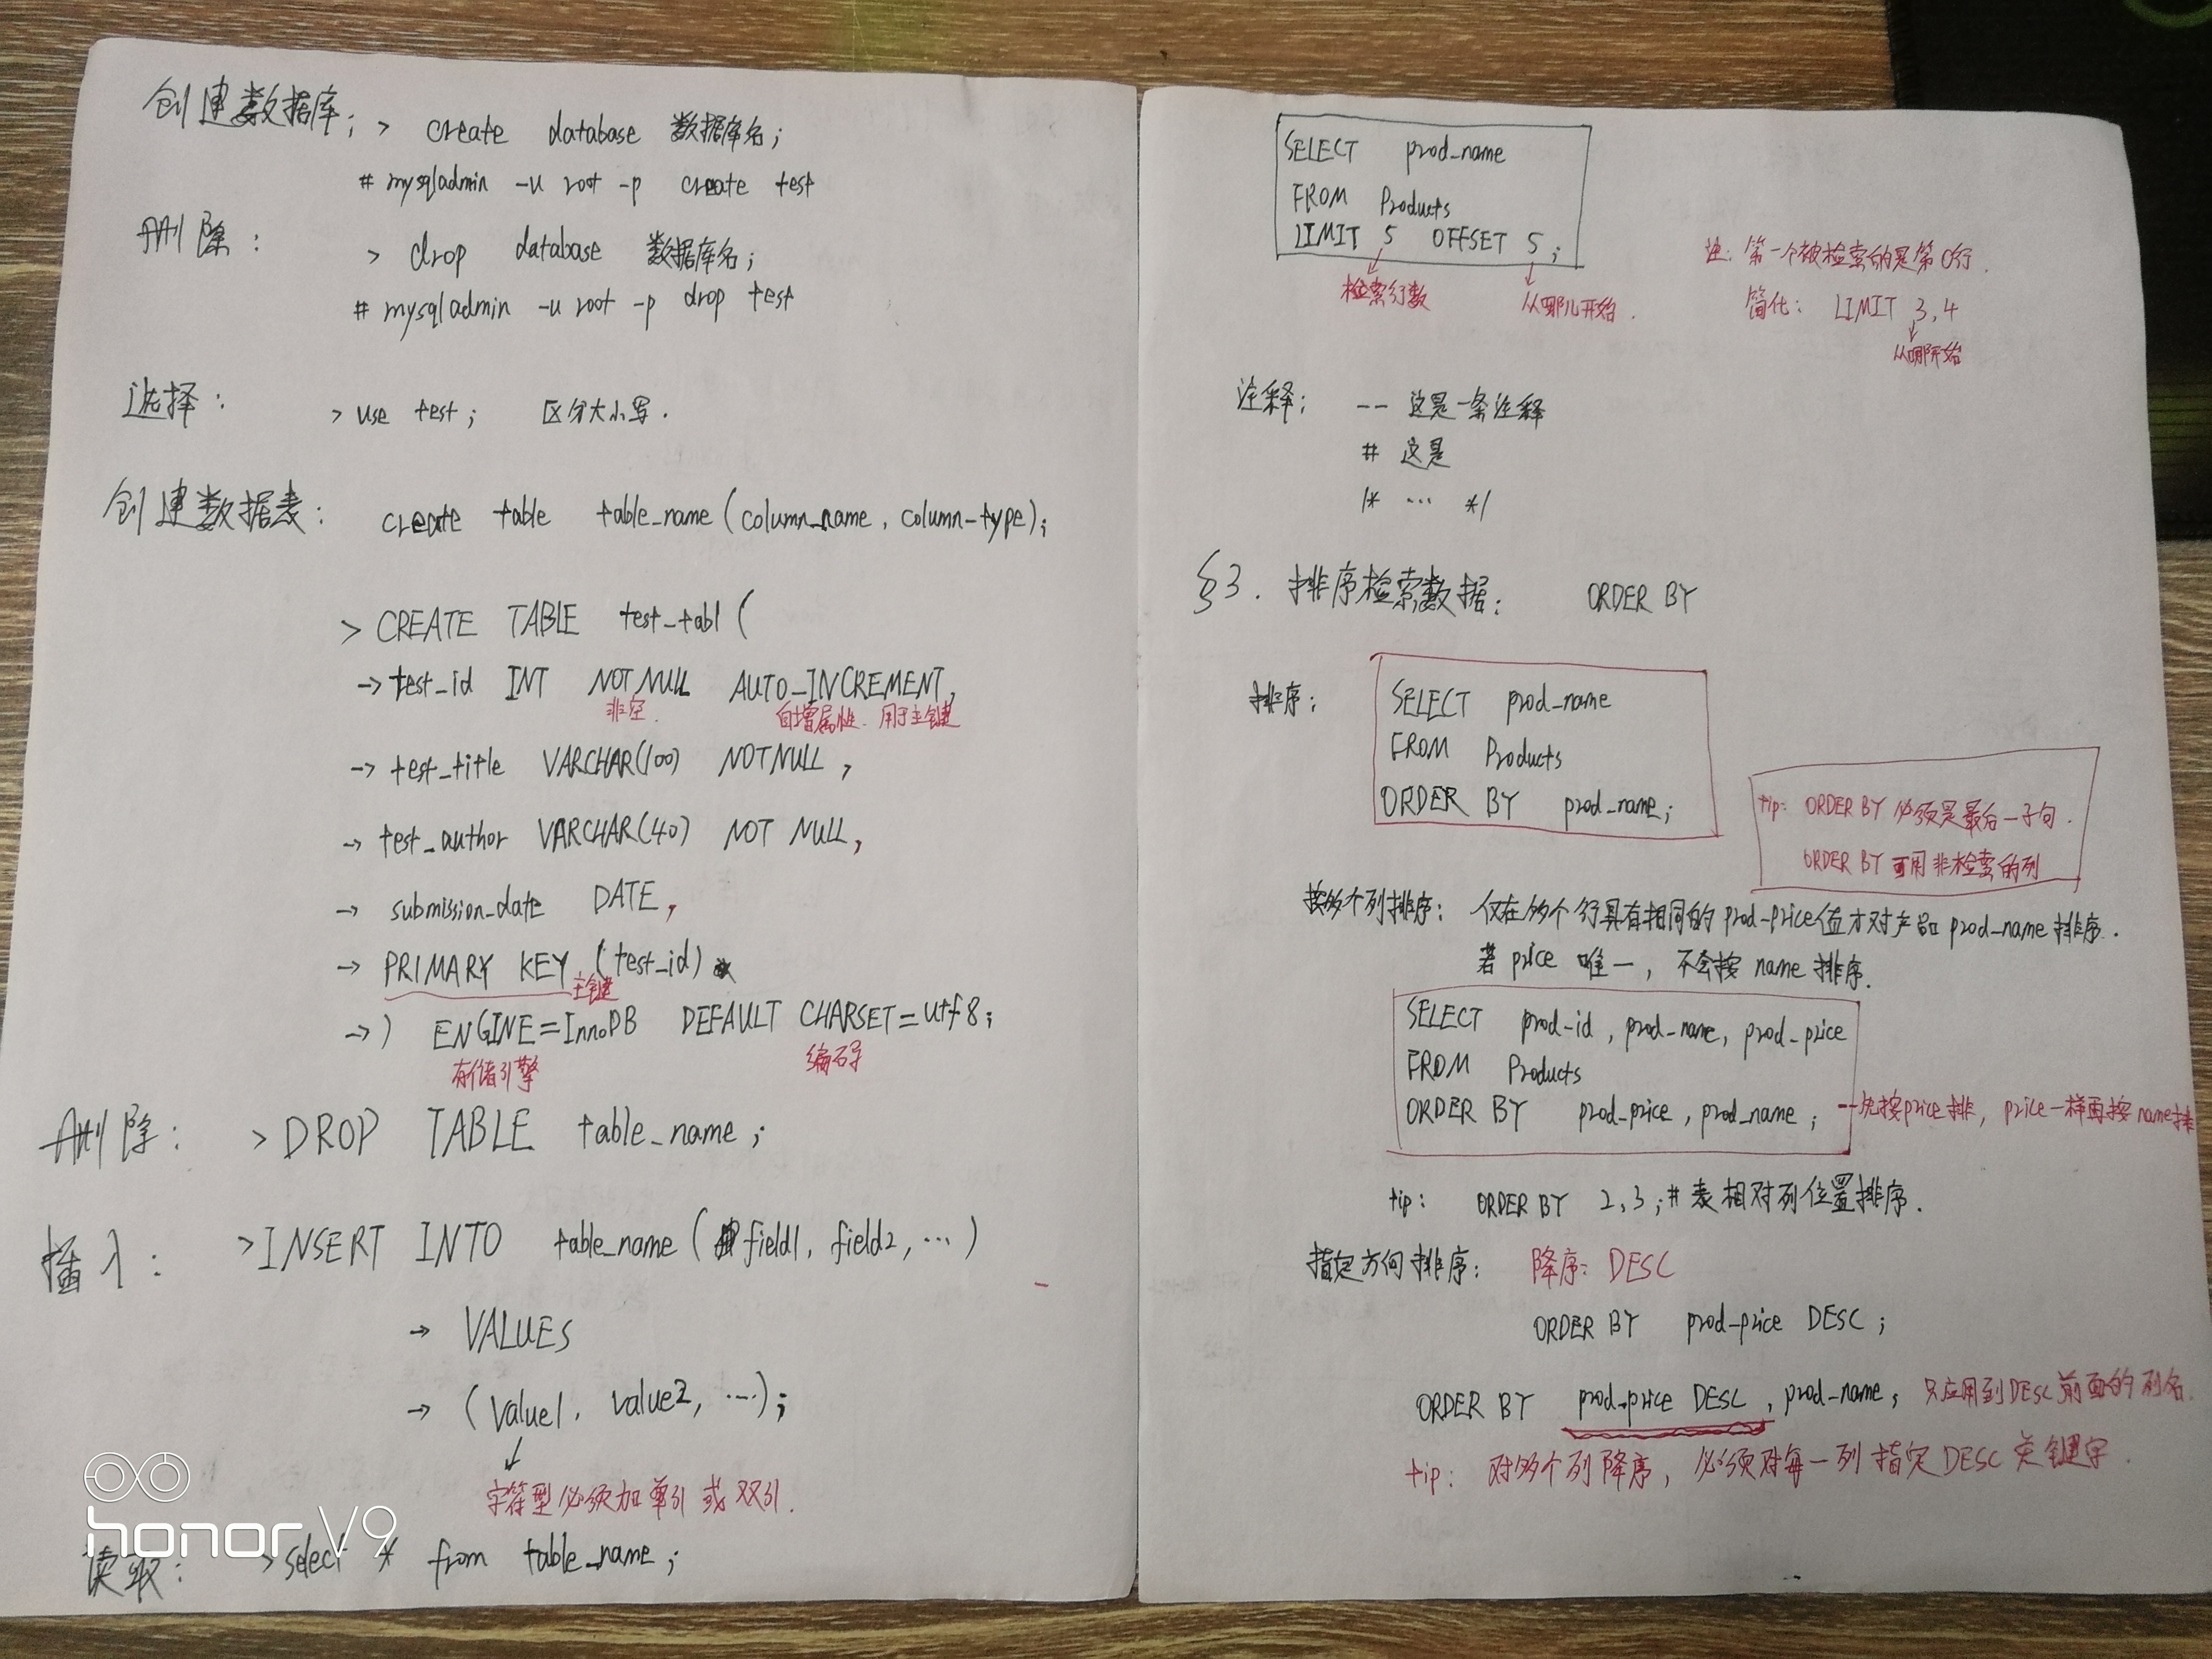 创建数据库; > create database 数据库名;
# mysqladmin -u root -p create test
删除: > drop database 数据库名;
# mysqladmin -u root -p drop test
选择: > use test; 区分大小写.
创建数据表: create table table_name (column_name, column-type);
> CREATE TABLE test_tabl (
-> test_id INT NOT NULL AUTO_INCREMENT,
非空. 自增属性. 用于主键
-> test_title VARCHAR(100) NOT NULL,
-> test_author VARCHAR(40) NOT NULL,
-> submission_date DATE,
-> PRIMARY KEY (test_id)
主键
-> ) ENGINE=InnoDB DEFAULT CHARSET=utf8;
存储引擎 编码
删除: > DROP TABLE table_name;
插入: > INSERT INTO table_name (field1, field2, ...)
-> VALUES
-> (value1, value2, ...);
字符型必须加单引或双引.
读取: > select * from table_name;
honor V9
SELECT prod_name
FROM Products
LIMIT 5 OFFSET 5;
检索行数 从哪儿开始.
注: 第一个被检索的是第0行.
简化: LIMIT 3,4
从哪开始
注释: -- 这是一条注释
# 这是
/* ... */
§3. 排序检索数据: ORDER BY
排序:
SELECT prod_name
FROM Products
ORDER BY prod_name;
tip: ORDER BY 必须是最后一子句.
ORDER BY 可用非检索的列
按多个列排序: 仅在多个行具有相同的prod-price值才对产品prod_name排序.
若price唯一, 不会按name排序.
SELECT prod-id, prod_name, prod_price
FROM Products
ORDER BY prod_price, prod_name; --先按price排, price一样再按name排
tip: ORDER BY 2,3; # 表相对列位置排序.
指定方向排序: 降序: DESC
ORDER BY prod-price DESC;
ORDER BY prod-price DESC, prod_name; 只应用到DESC前面的列名.
tip: 对多个列降序, 必须对每一列指定DESC关键字.